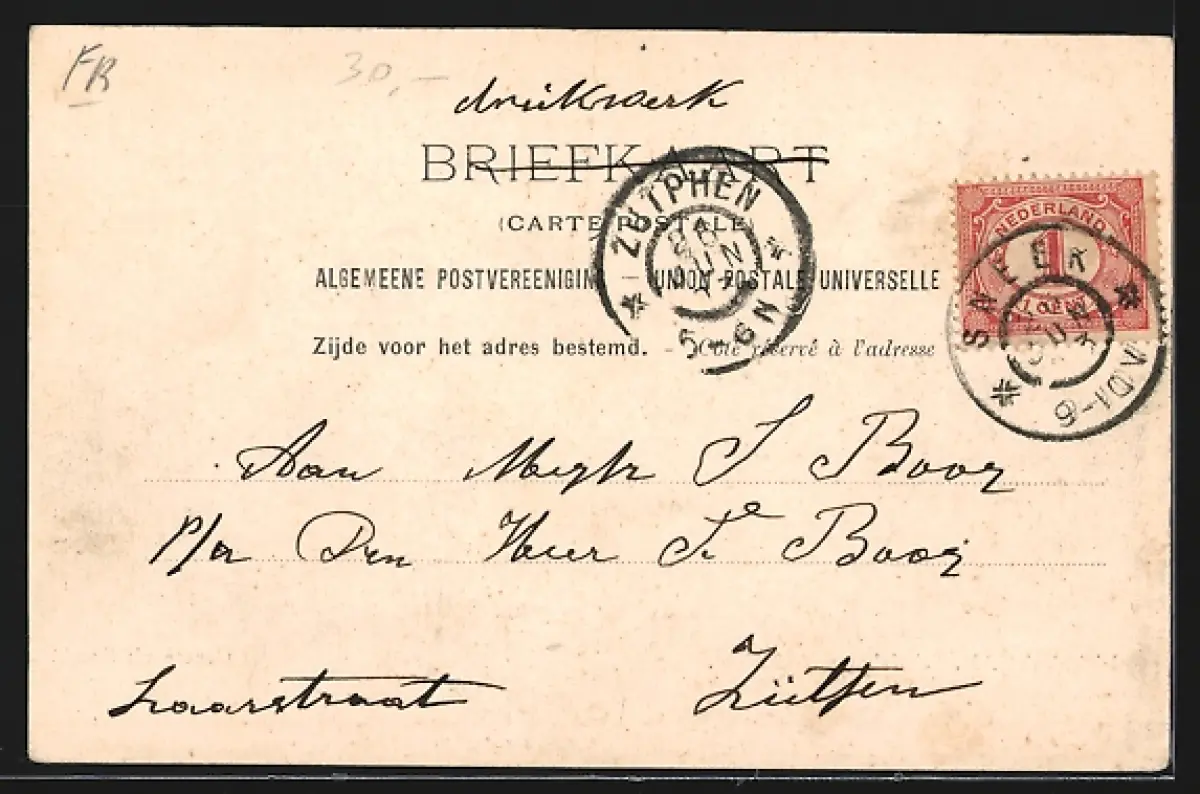 FR 30,-
drukwerk
BRIEFKAART
(CARTE POSTALE)
ALGEMEENE POSTVEREENIGING – UNION POSTALE UNIVERSELLE
Zijde voor het adres bestemd. – Côté réservé à l'adresse
ZUTPHEN
JUN
5-6N
NEDERLAND
1
CENT
SNEEK
JUN
Aan Mejfr S Booy
p/a Den Heer Booy
Laarstraat Zütfen